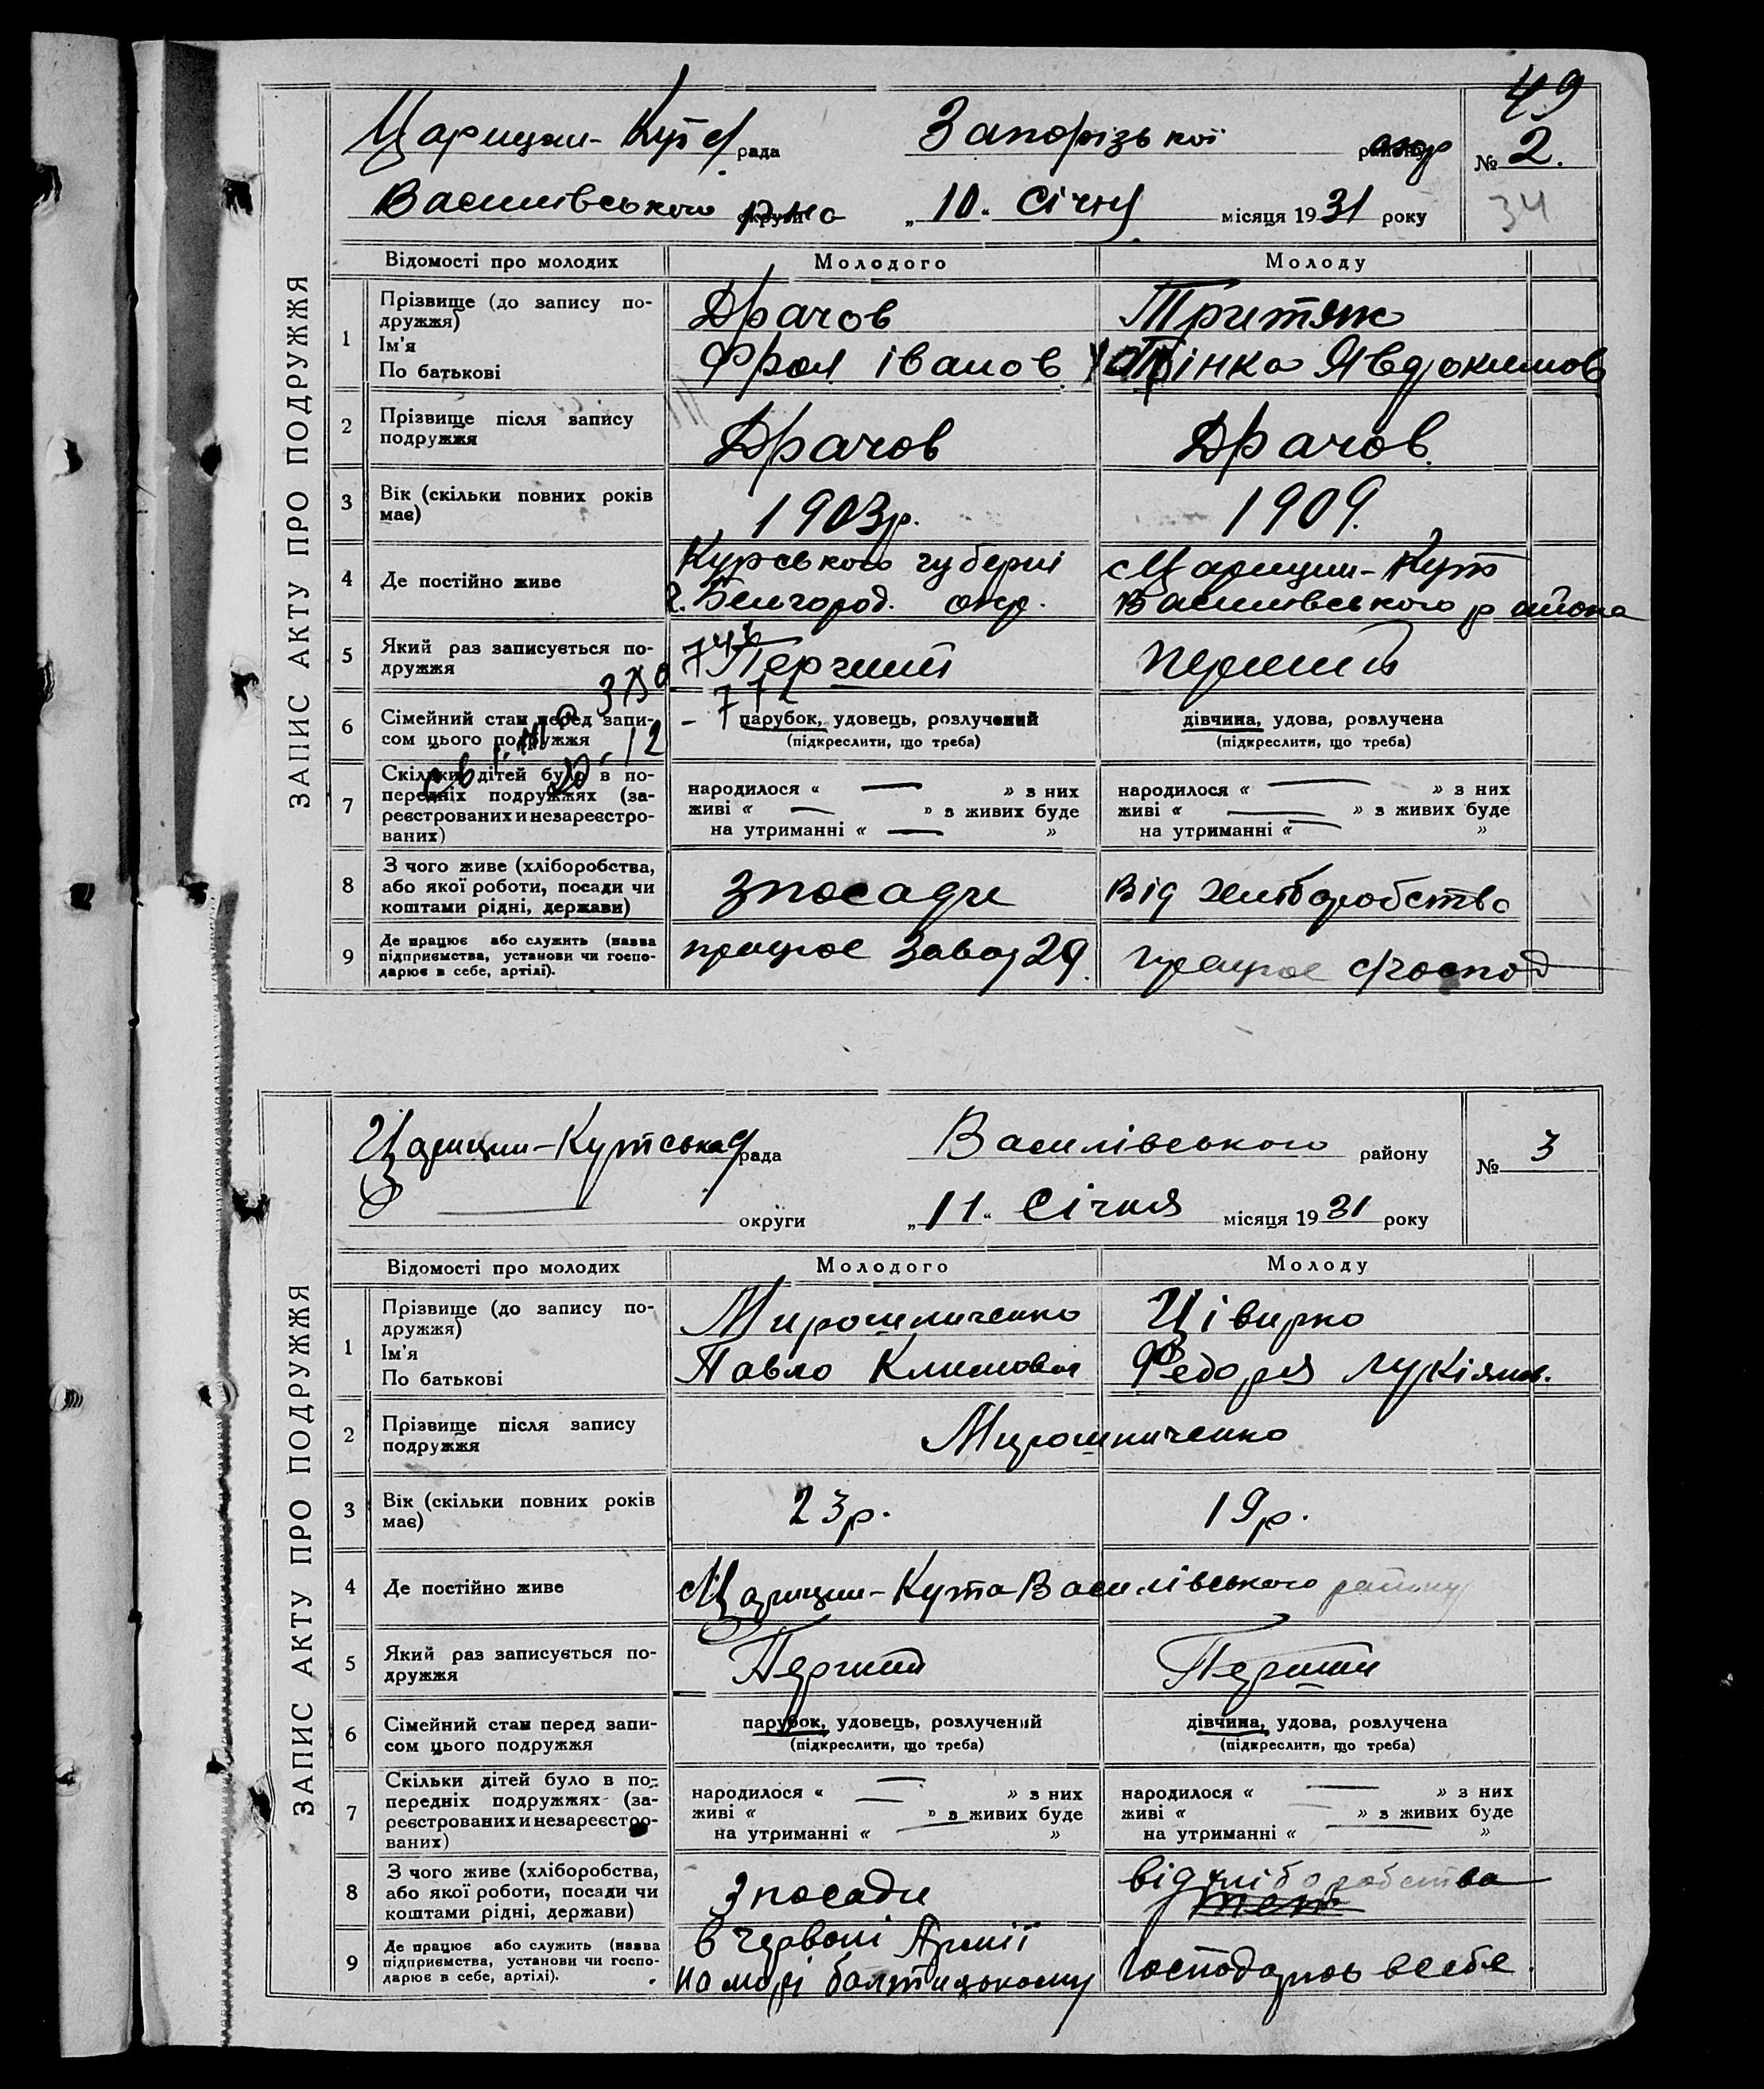 49
Царицин-Кутс рада Запорізької окр № 2.
34
Василівського р-на „10" Січня місяця 1931 року
ЗАПИС АКТУ ПРО ПОДРУЖЖЯ
Відомості про молодих Молодого Молоду
1 Прізвище (до запису по-
дружжя)
Ім'я
По батькові
Драчов
Фрол Іванов
Тритяк
Явдокимов
2 Прізвище після запису
подружжя
Драчов Драчов
3 Вік (скільки повних років
має)
1903р. 1909.
4 Де постійно живе
Курського губерні
г. Белгород. окр.
Царицин-Кут
Василівського района
5 Який раз записується по-
дружжя
Перший Перший
6 Сімейний стан перед запи-
сом цього подружжя
парубок, удовець, розлучений
(підкреслити, що треба)
дівчина, удова, розлучена
(підкреслити, що треба)
7 Скільки дітей було в по-
передніх подружжях (за-
реєстрованих и незареєстро-
ваних)
народилося « — » з них
живі « — » з живих буде
на утриманні « — »
народилося « — » з них
живі « — » з живих буде
на утриманні « — »
8 З чого живе (хліборобства,
або якої роботи, посади чи
коштами рідні, держави)
З посади
Від хліборобства
9 Де працює або служить (назва
підприємства, установи чи госпо-
дарює в себе, артілі).
працює Завод 29.
працює с/господ
Царицин-Кутська рада Василівського району № 3
округи „11" Січня місяця 1931 року
ЗАПИС АКТУ ПРО ПОДРУЖЖЯ
Відомості про молодих Молодого Молоду
1 Прізвище (до запису по-
дружжя)
Ім'я
По батькові
Мирошниченко
Павло Климович
Цівирко
Федора Лукіянов.
2 Прізвище після запису
подружжя
Мирошниченко
3 Вік (скільки повних років
має)
23р. 19р.
4 Де постійно живе
Царицин-Кута Василівського району
5 Який раз записується по-
дружжя
Перший Перший
6 Сімейний стан перед запи-
сом цього подружжя
парубок, удовець, розлучений
(підкреслити, що треба)
дівчина, удова, розлучена
(підкреслити, що треба)
7 Скільки дітей було в по-
передніх подружжях (за-
реєстрованих и незареєстро-
ваних)
народилося « — » з них
живі « — » з живих буде
на утриманні « — »
народилося « — » з них
живі « — » з живих буде
на утриманні « — »
8 З чого живе (хліборобства,
або якої роботи, посади чи
коштами рідні, держави)
З посади
від хліборобства
9 Де працює або служить (назва
підприємства, установи чи госпо-
дарює в себе, артілі).
в червоні Армії
на морі балтицькому
Господарює в себе